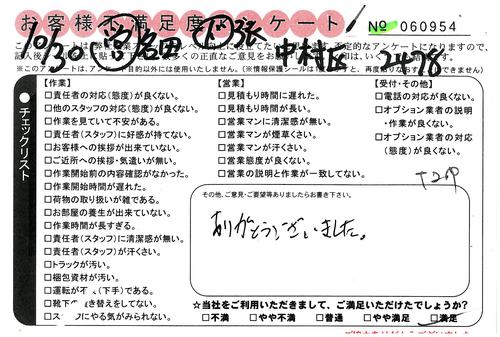 お客様不満足度アンケート
№ 060954
10/30 営 名田 作 張 中村区 2478
※このアンケートは、アンケート目的以外には使用いたしません。
チェックリスト
【作業】
□責任者の対応(態度)が良くない。
□他のスタッフの対応(態度)が良くない。
□作業を見ていて不安がある。
□責任者(スタッフ)に好感が持てない。
□お客様への挨拶が出来ていない。
□ご近所への挨拶・気遣いが無い。
□作業開始前の内容確認がなかった。
□作業開始時間が遅れた。
□荷物の取り扱いが雑である。
□お部屋の養生が出来ていない。
□作業時間が長すぎる。
□責任者(スタッフ)に清潔感が無い。
□責任者(スタッフ)が汗くさい。
□トラックが汚い。
□梱包資材が汚い。
□運転が (下手)である。
靴下 き替えをしてない。
□ス フにやる気がみられない。
【営業】
□見積もり時間に遅れた。
□見積もり時間が長い。
□営業マンに清潔感が無い。
□営業マンが煙草くさい。
□営業マンが汗くさい。
□営業態度が良くない。
□営業の説明と作業が一致してない。
【受付・その他】
□電話の対応が良くない。
□オプション業者の説明
・作業が良くない。
□オプション業者の対応
(態度)が良くない。
その他、ご意見・ご要望等ありましたらお書き下さい。
ありがとうございました。
☆当社をご利用いただきまして、ご満足いただけたでしょうか?
□不満 □やや不満 □普通 □やや満足 □満足